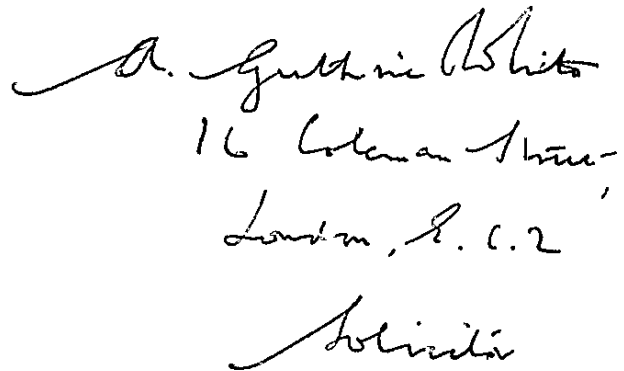 A. Guthrie White
16 Coleman Street,
London, E.C.2
Solicitor